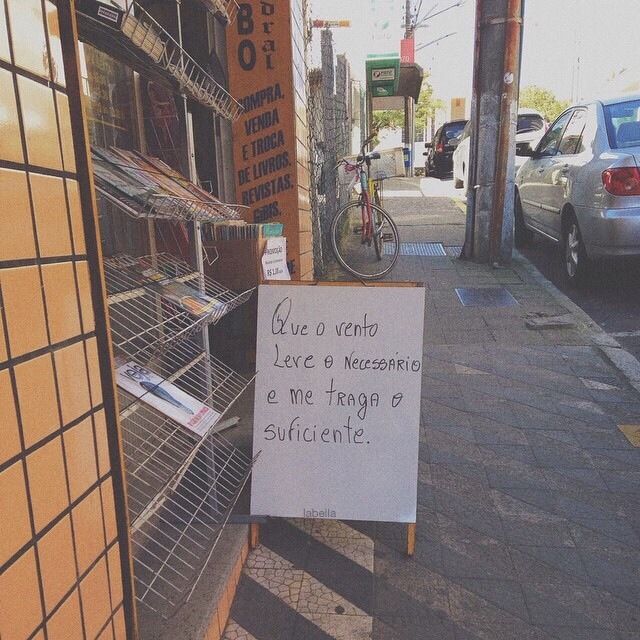 dral
BO
COMPRA,
VENDA
E TROCA
DE LIVROS,
REVISTAS,
GIBIS
PROMOÇÃO
R$ 1,00
Que o vento
Leve o necessário
e me traga o
suficiente.
labella